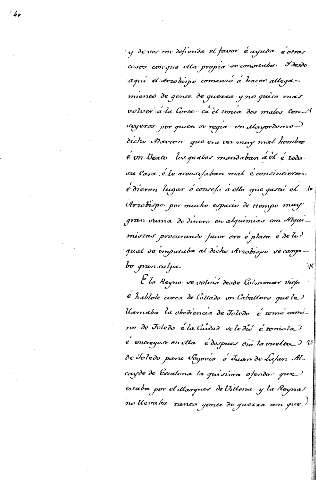 y de vos me defienda el favor é ayuda é otras
cosas con que ella propia se conortaba. Y desde
aqui el Arzobispo comenzó á hacer allega-
miento de gente de guerra y no quiso mas
volver á la Corte cá el tenia dos malos con-
sejeros por quien se regia un Mayordomo
dicho Alarcon que era muy mal hombre
é un Beato los quales mandaban á él é toda
su Casa, é le aconsejaban mal é consintieron
é dieron lugar é consejo á ello que gastó el
Arzobispo por mucho espacio de tiempo muy
gran suma de dinero en alquimias con Alqui-
mistas procurando facer oro é plata é de lo
qual se imputaba al dicho Arzobispo se cargo
bo gran culpa.
E la Reyna se volvió desde Colmenar
é hablóle cerca de Collado un Caballero que le
llamaba la Audiencia de Toledo é tomó cami-
no de Toledo é la Ciudad se le dió é tomola
é entregose en ella é despues dió la vuelta
de Toledo para Segovia é Juan de Lujan Al-
cayde de Escalona la quisiera ofender que
estaba por el Marques de Villena y la Reyna
no llevaba tanta gente de guerra con que